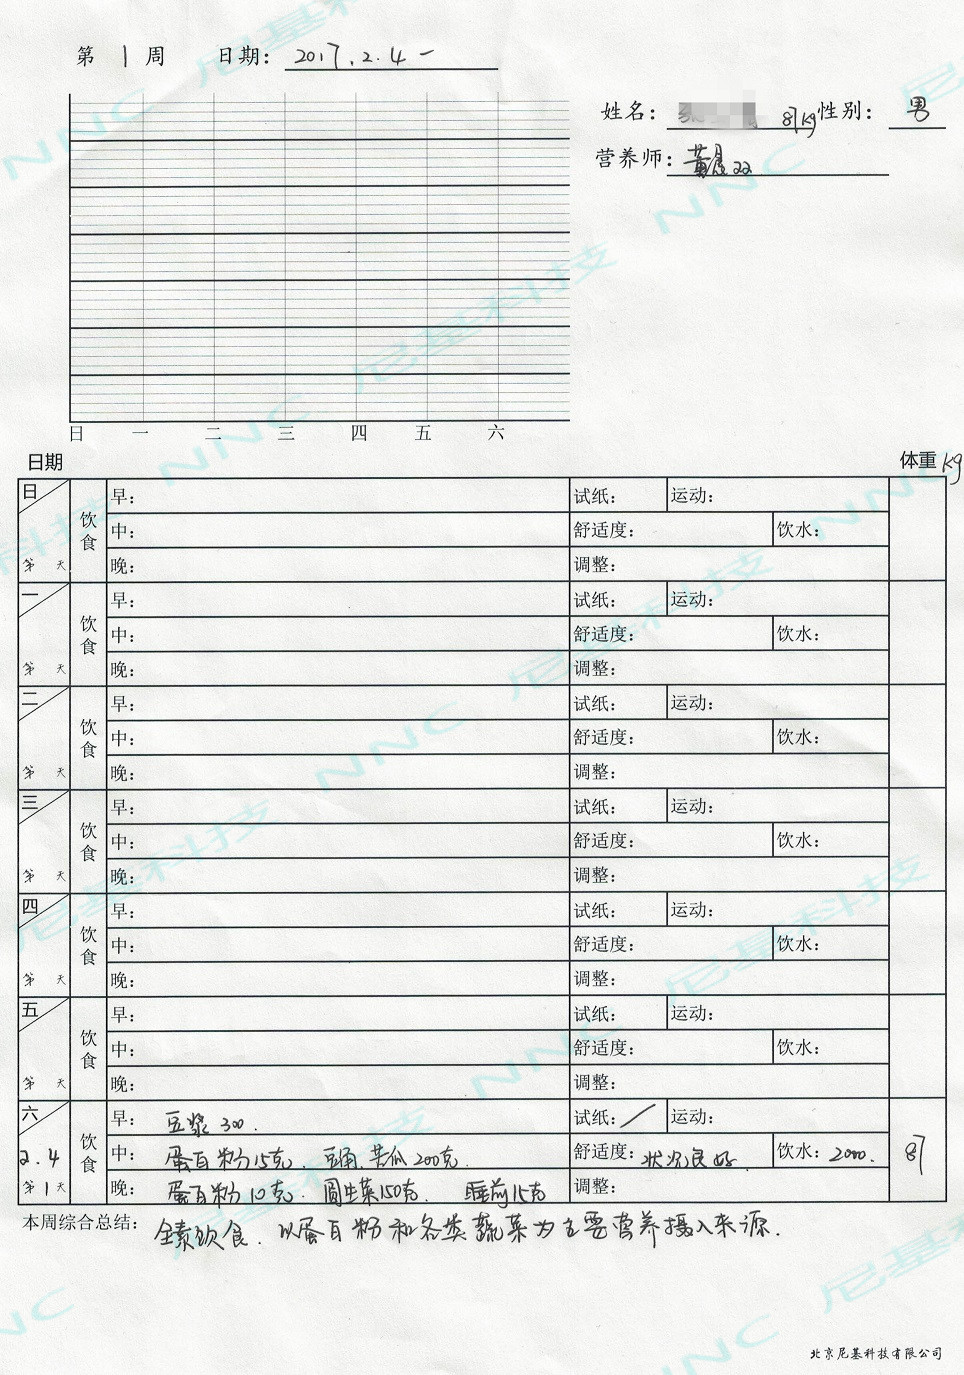 第 1 周 日期： 2017.2.4 一
姓名： 87kg 性别： 男
营养师： 黄
日 一 二 三 四 五 六
日期 体重 kg
日 饮食 早： 试纸： 运动：
中： 舒适度： 饮水：
第 天 晚： 调整：
一 饮食 早： 试纸： 运动：
中： 舒适度： 饮水：
第 天 晚： 调整：
二 饮食 早： 试纸： 运动：
中： 舒适度： 饮水：
第 天 晚： 调整：
三 饮食 早： 试纸： 运动：
中： 舒适度： 饮水：
第 天 晚： 调整：
四 饮食 早： 试纸： 运动：
中： 舒适度： 饮水：
第 天 晚： 调整：
五 饮食 早： 试纸： 运动：
中： 舒适度： 饮水：
第 天 晚： 调整：
六 饮食 早： 豆浆 300. 试纸：／ 运动：
2.4 中： 蛋白粉15克. 苦瓜200克. 舒适度： 状况良好. 饮水：2000. 87
第1天 晚： 蛋白粉10克. 圆生菜150克. 睡前15克 调整：
本周综合总结： 全素饮食. 以蛋白粉和各类蔬菜为主要营养摄入来源.
北京尼基科技有限公司
NNC 尼基科技